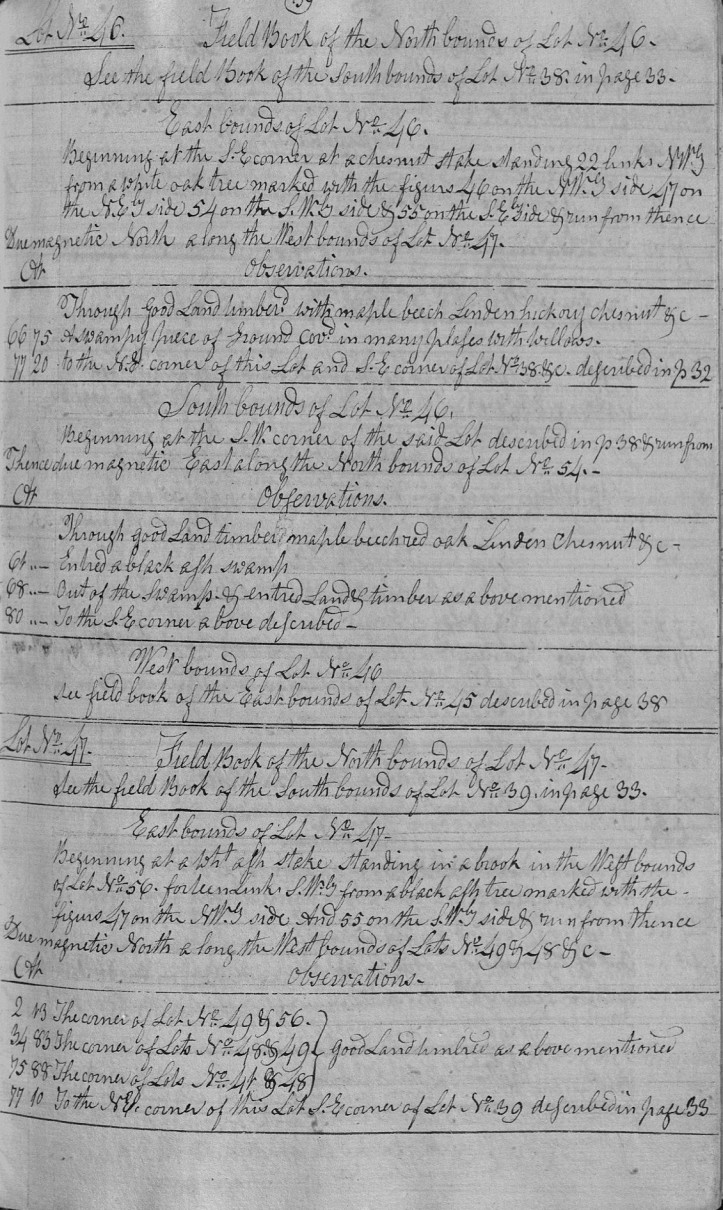 39
Lot No. 46. Field Book of the North bounds of Lot No. 46.
See the field Book of the South bounds of Lot No. 38. in page 33.
East bounds of Lot No. 46.
Beginning at the S.E corner at a chesnut stake standing 22 links NWly
from a white oak tree marked with the figurs 46 on the NWly side 47 on
the N.Ely side 54 on the S.Wly side & 55 on the S.Ely side & run from thence
Due magnetic North along the West bounds of Lot No. 47.
Ch Observations.
Through good Land timberd with maple beech Linden hickory chesnut &c -
66 75 A swampy piece of Ground Covd in many plases with willows.
77 20 to the N.E. corner of this Lot and S.E corner of Lot No 38. &c. described in p 32
South bounds of Lot No. 46.
Beginning at the S.W. corner of the said Lot described in p 38 & run from
Thence due magnetic East along the North bounds of Lot No. 54. -
Ch Observations.
Through good Land timberd maple beech red oak Linden Chesnut &c -
61 .. - Entred a black ash swamp
68 .. - Out of the Swamp. & entred Land & timber as above mentioned
80 .. - To the S.E corner above described -
West bounds of Lot No. 46
see field book of the East bounds of Lot No. 45 described in page 38
Lot No. 47. Field Book of the North bounds of Lot No. 47.
see the field Book of the South bounds of Lot No. 39. in page 33.
East bounds of Lot No. 47 -
Beginning at a wht ash stake standing in a brook in the West bounds
of Lot No. 56. forteen Links S.Wly from a black ash tree marked with the
figurs 47 on the NWly side And 55 on the S.Wly side & run from thence
Due magnetic North along the West bounds of Lots No. 49 & 48 &c -
Ch Observations -
2 13 The corner of Lot No. 49 & 56.
34 83 The corner of Lots No. 48. & 49 good Land timbred as above mentioned
75 88 The corner of Lots No. 41 & 48
77 10 To the N.E. corner of this Lot S.E corner of Lot No. 39 described in page 33